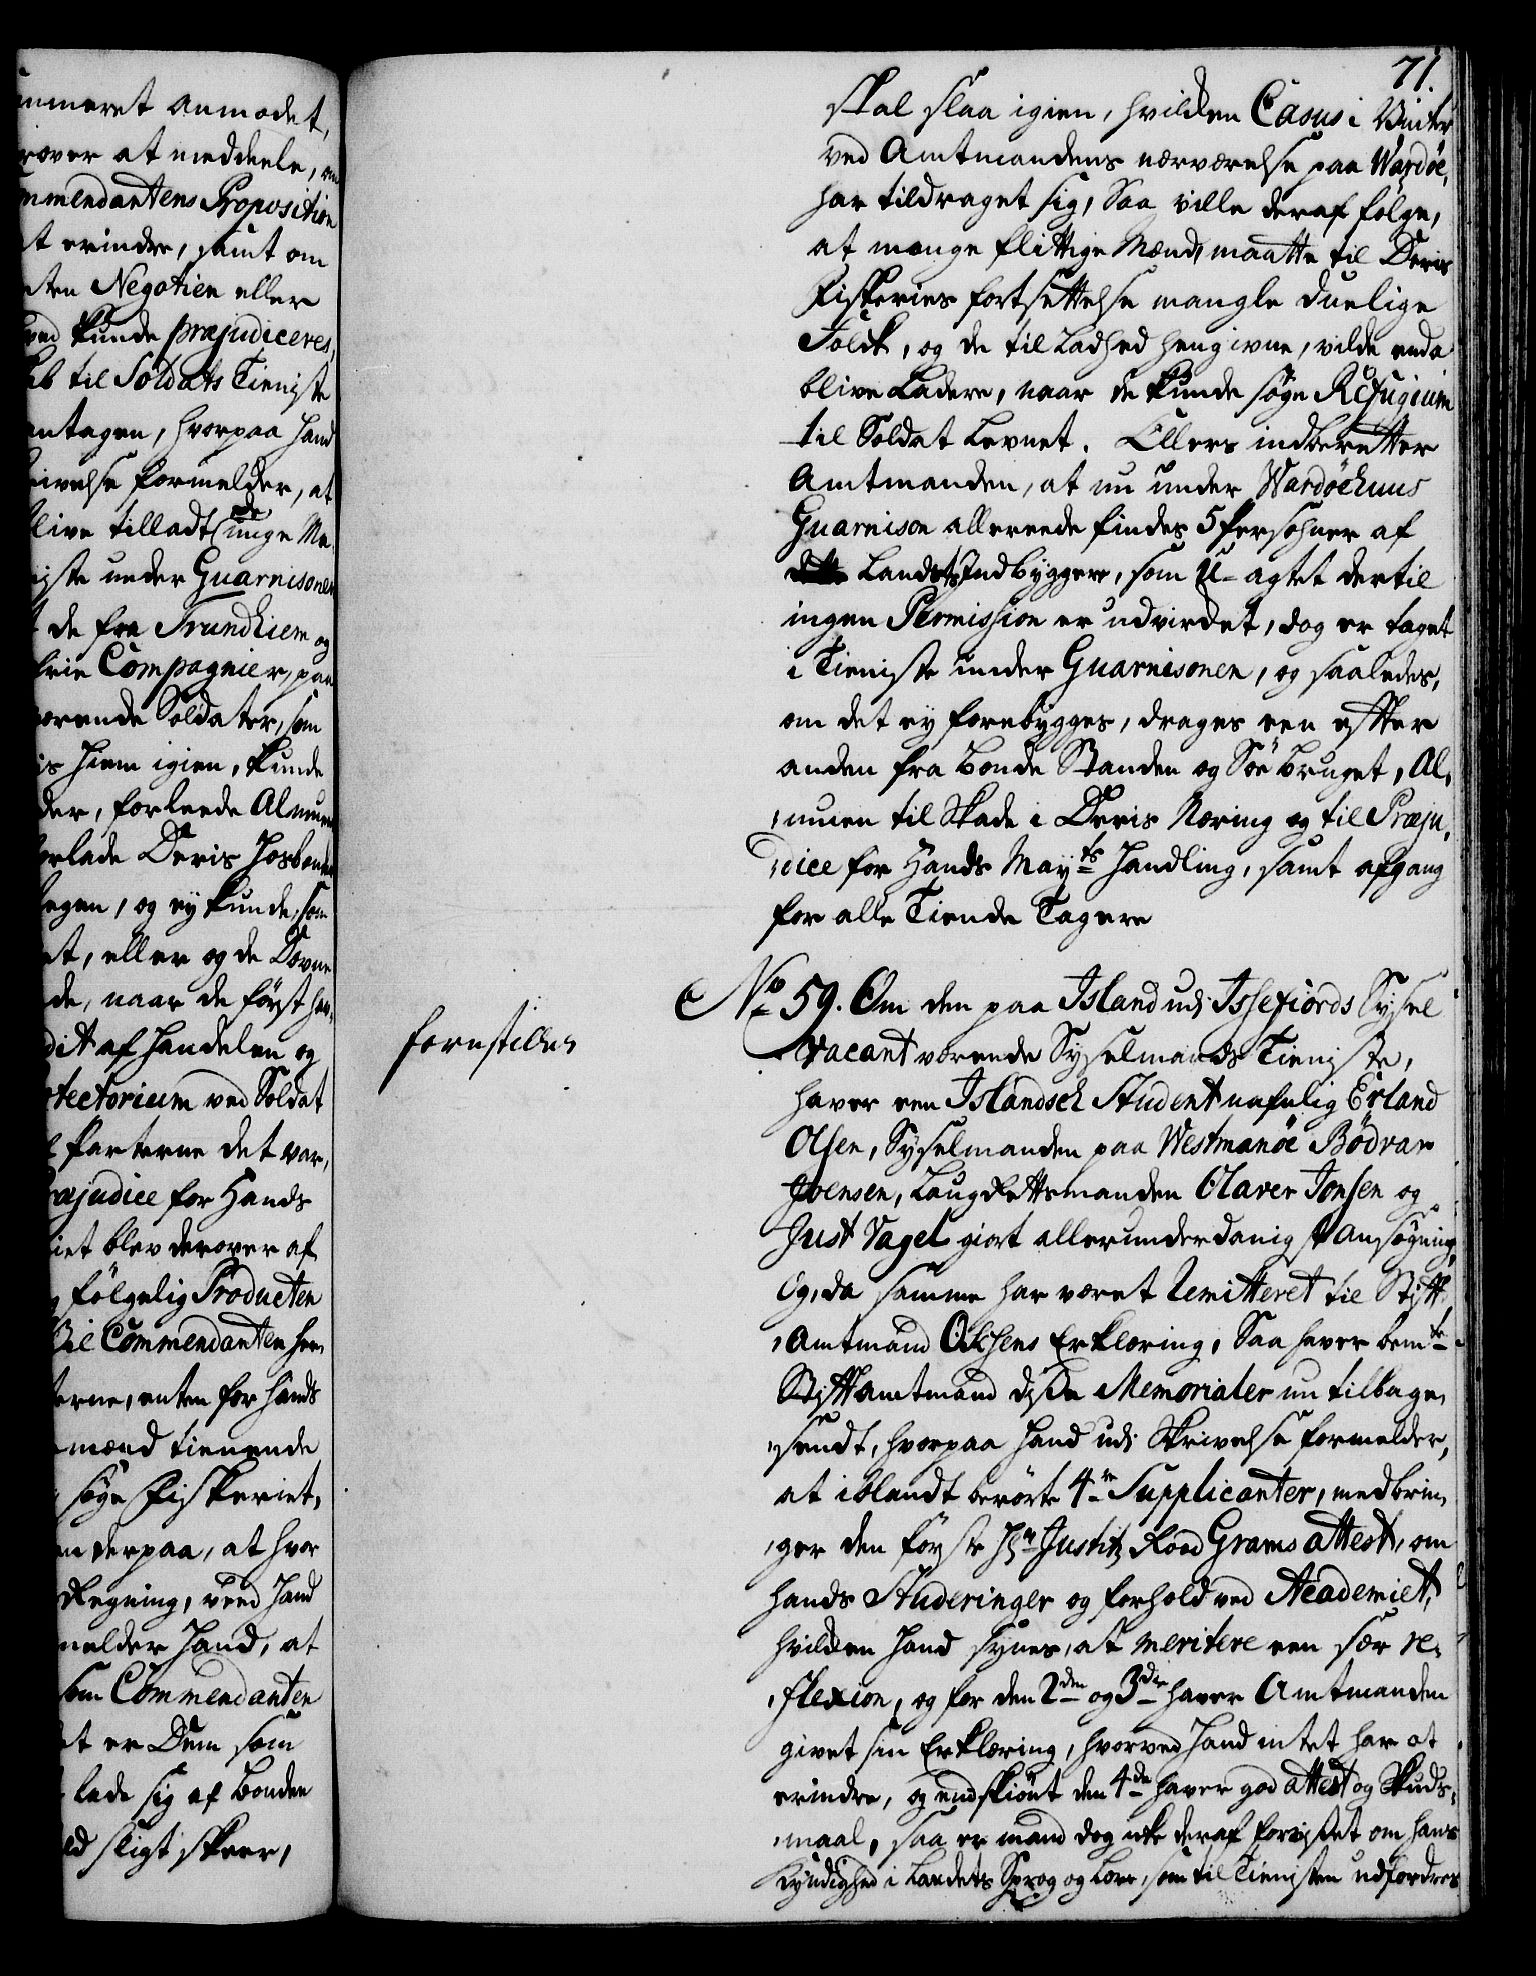 ummeret anmodet,
rover at meddeele, om
mmendantens Proposition
t erindre, samt om
ten Negotien eller
ved kunde præjudiceres,
ab til Soldats Tieniste
antagen, hvorpaa Hand
ivelse formelder, at
live tilladt de unge Ma
iste under Guarnisonen
de fra Trundhiem og
frie Compagnier, paa
ørende Soldater, som
is hiem igien, kunde
der, forleede Almuen
orlade Deris Hosbonder
egen, og ey kunde, som
et, eller og de Dovne
de, naar de først har
dit af Handelen og
otectorium ved Soldat
parterne det var,
ræjudice for Hands
iet blev derover af,
følgelig Producten
Commendanten her
erne, enten for Hands
mænd tienende
søge Fiskeriet,
n derpaa, at hvor
Regning, veed Hand
melder Hand, at
som Commendanten
t er Dem som
lade sig af Bonden
ld sligt skeer,
71.
skal slaa igien, hvilken Casus i Vinter
ved Amtmandens nærværelse paa Wardöe,
har tildraget sig, Saa ville deraf følge,
at mange flittige Mænd, maatte til Deris
Fiskeries fortsettelse mangle duelige
Folk, og de til Ladhed hengivne, vilde enda
blive Ladere, naar de kunde søge Refugium
til Soldat Levnet. Ellers indberetter
Amtmanden, at nu under Wardöehuus
Guarnison allereede findes 5 Persohner af
Landets Indbyggere, som U-agtet dertil
ingen Permission er udvirket, dog er taget
i Tieniste under Guarnisonen, og saaledes,
om det ey forebygges, drages een efter
anden fra Bonde Standen og Söe Bruget, Al-
muen til Skade i Deris Næring og til Præju-
dice for Hands Mayts Handling, samt afgang
for alle Tiende Tagere
forestilles
No 59. Om den paa Island udi Issefiords Sysel
vacant værende Syselmands Tieniste,
haver een Islandsch Student nafnlig Erland
Olsen, Syselmanden paa Westmanöe Bödvar
Joensen, Laugrettsmanden Olaver Jonsen og
Just Vagel giort allerunderdanigst Ansøgning,
Og, da samme har været Remitteret til Stift-
Amtmand Ochsens Erklæring, Saa haver bemte
Stiftamtmand diße Memorialer nu tilbage-
sendt, hvorpaa Hand udi Skrivelse formelder,
at iblandt berørte 4re Supplicanter, medbrin-
ger den første Hr Justitz Raad Grams attest, om
hands Studeringer og forhold ved Academiet,
hvilken Hand synes, at meritere een sær re-
flexion, og for den 2den og 3die haver Amtmanden
givet sin Erklæring, hvorved Hand intet har at
erindre, og endskiönt den 4de haver god attest og Skuds-
maal, saa er mand dog icke deraf forvißet om hans
Kyndighed i Landets Sprog og Love, som til Tienisten udfordres